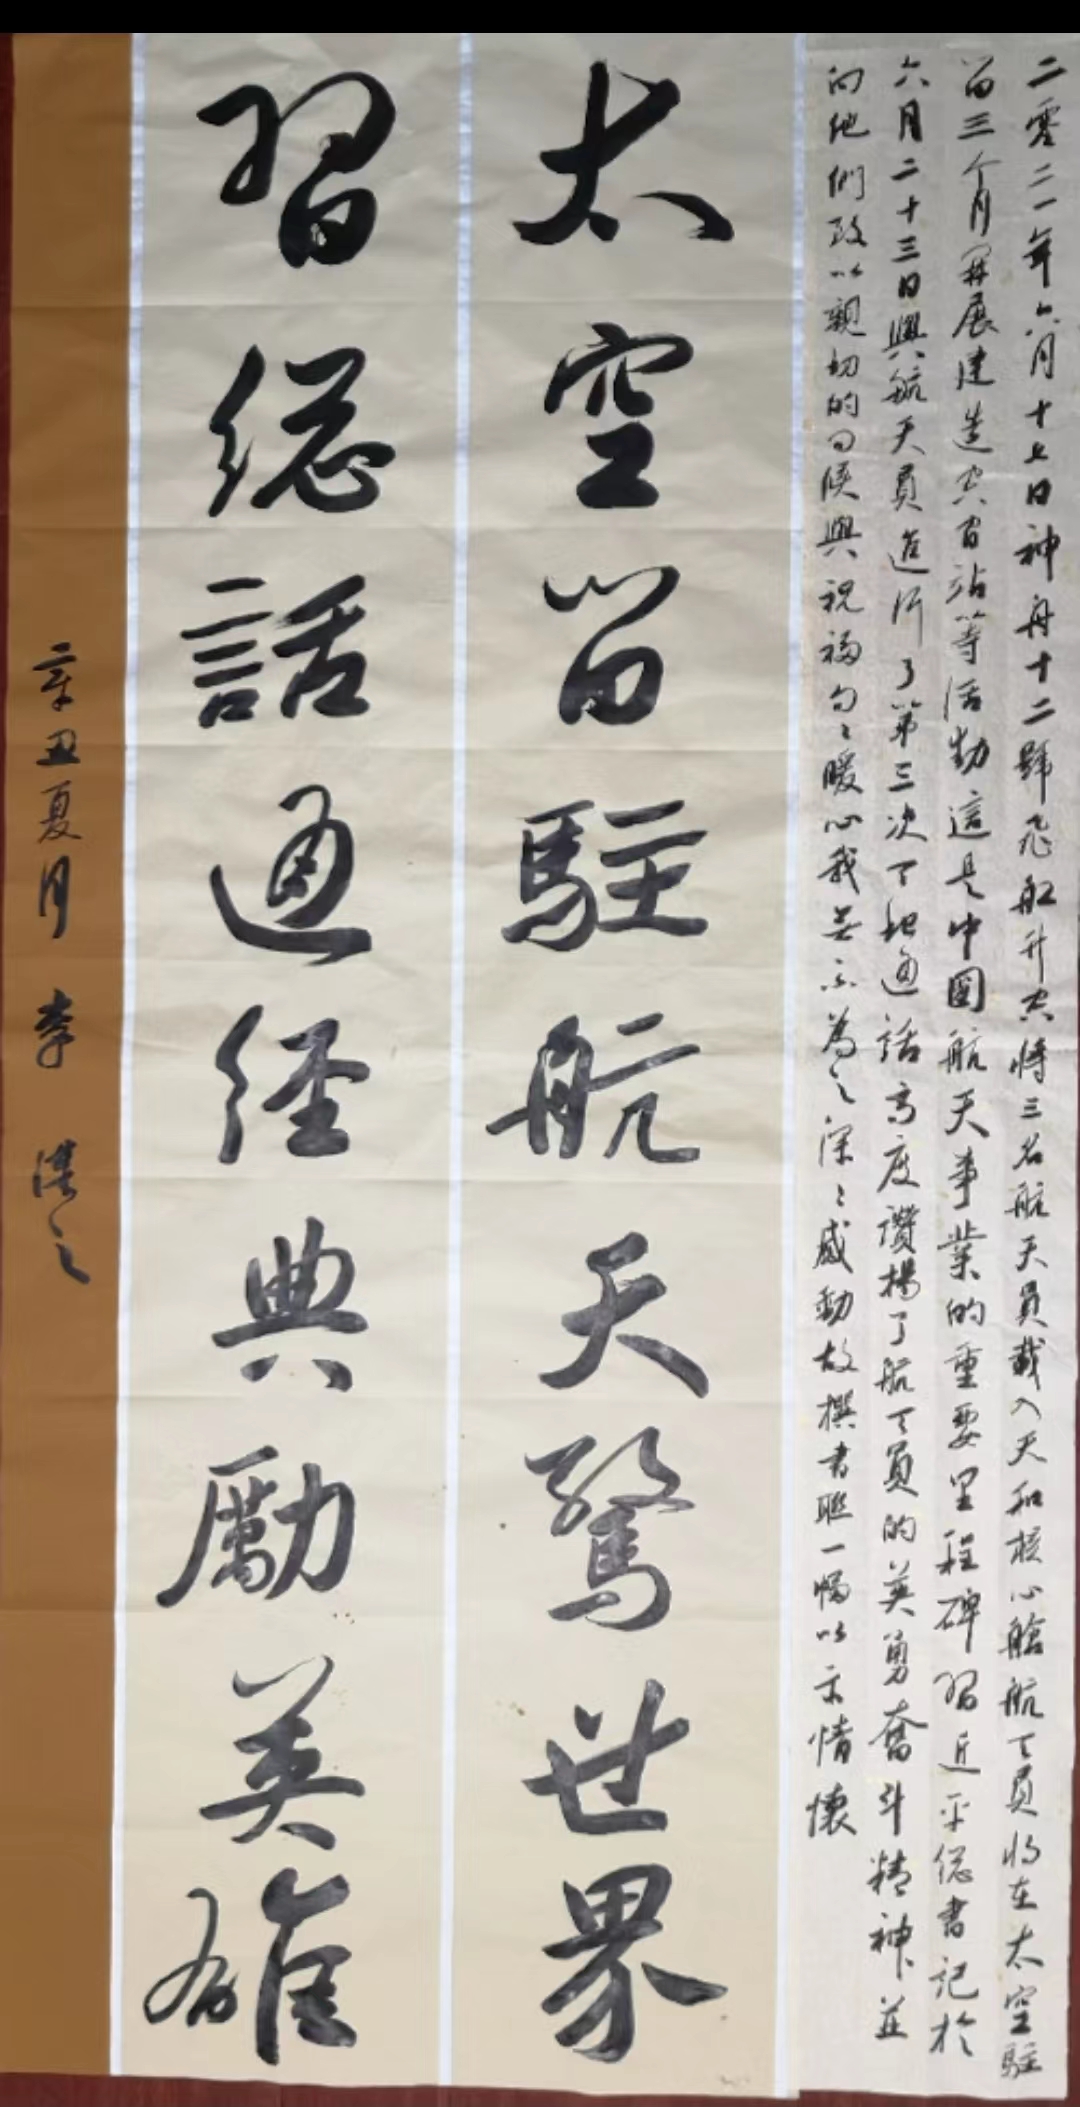 二零二一年六月十七日神舟十二號飛船升空將三名航天員載入天和核心艙航天員將在太空駐
留三个月開展建造空間站等活動這是中國航天事業的重要里程碑習近平總書記於
六月二十三日與航天員進行了第三次天地通話高度讚揚了航天員的英勇奮斗精神並
向他們致以親切的问候與祝福句々暖心我無不為之深々感動故撰書聯一幅以示情懷
太空留駐航天驚世界
習總話通經典勵英雄
辛丑夏月 李 之